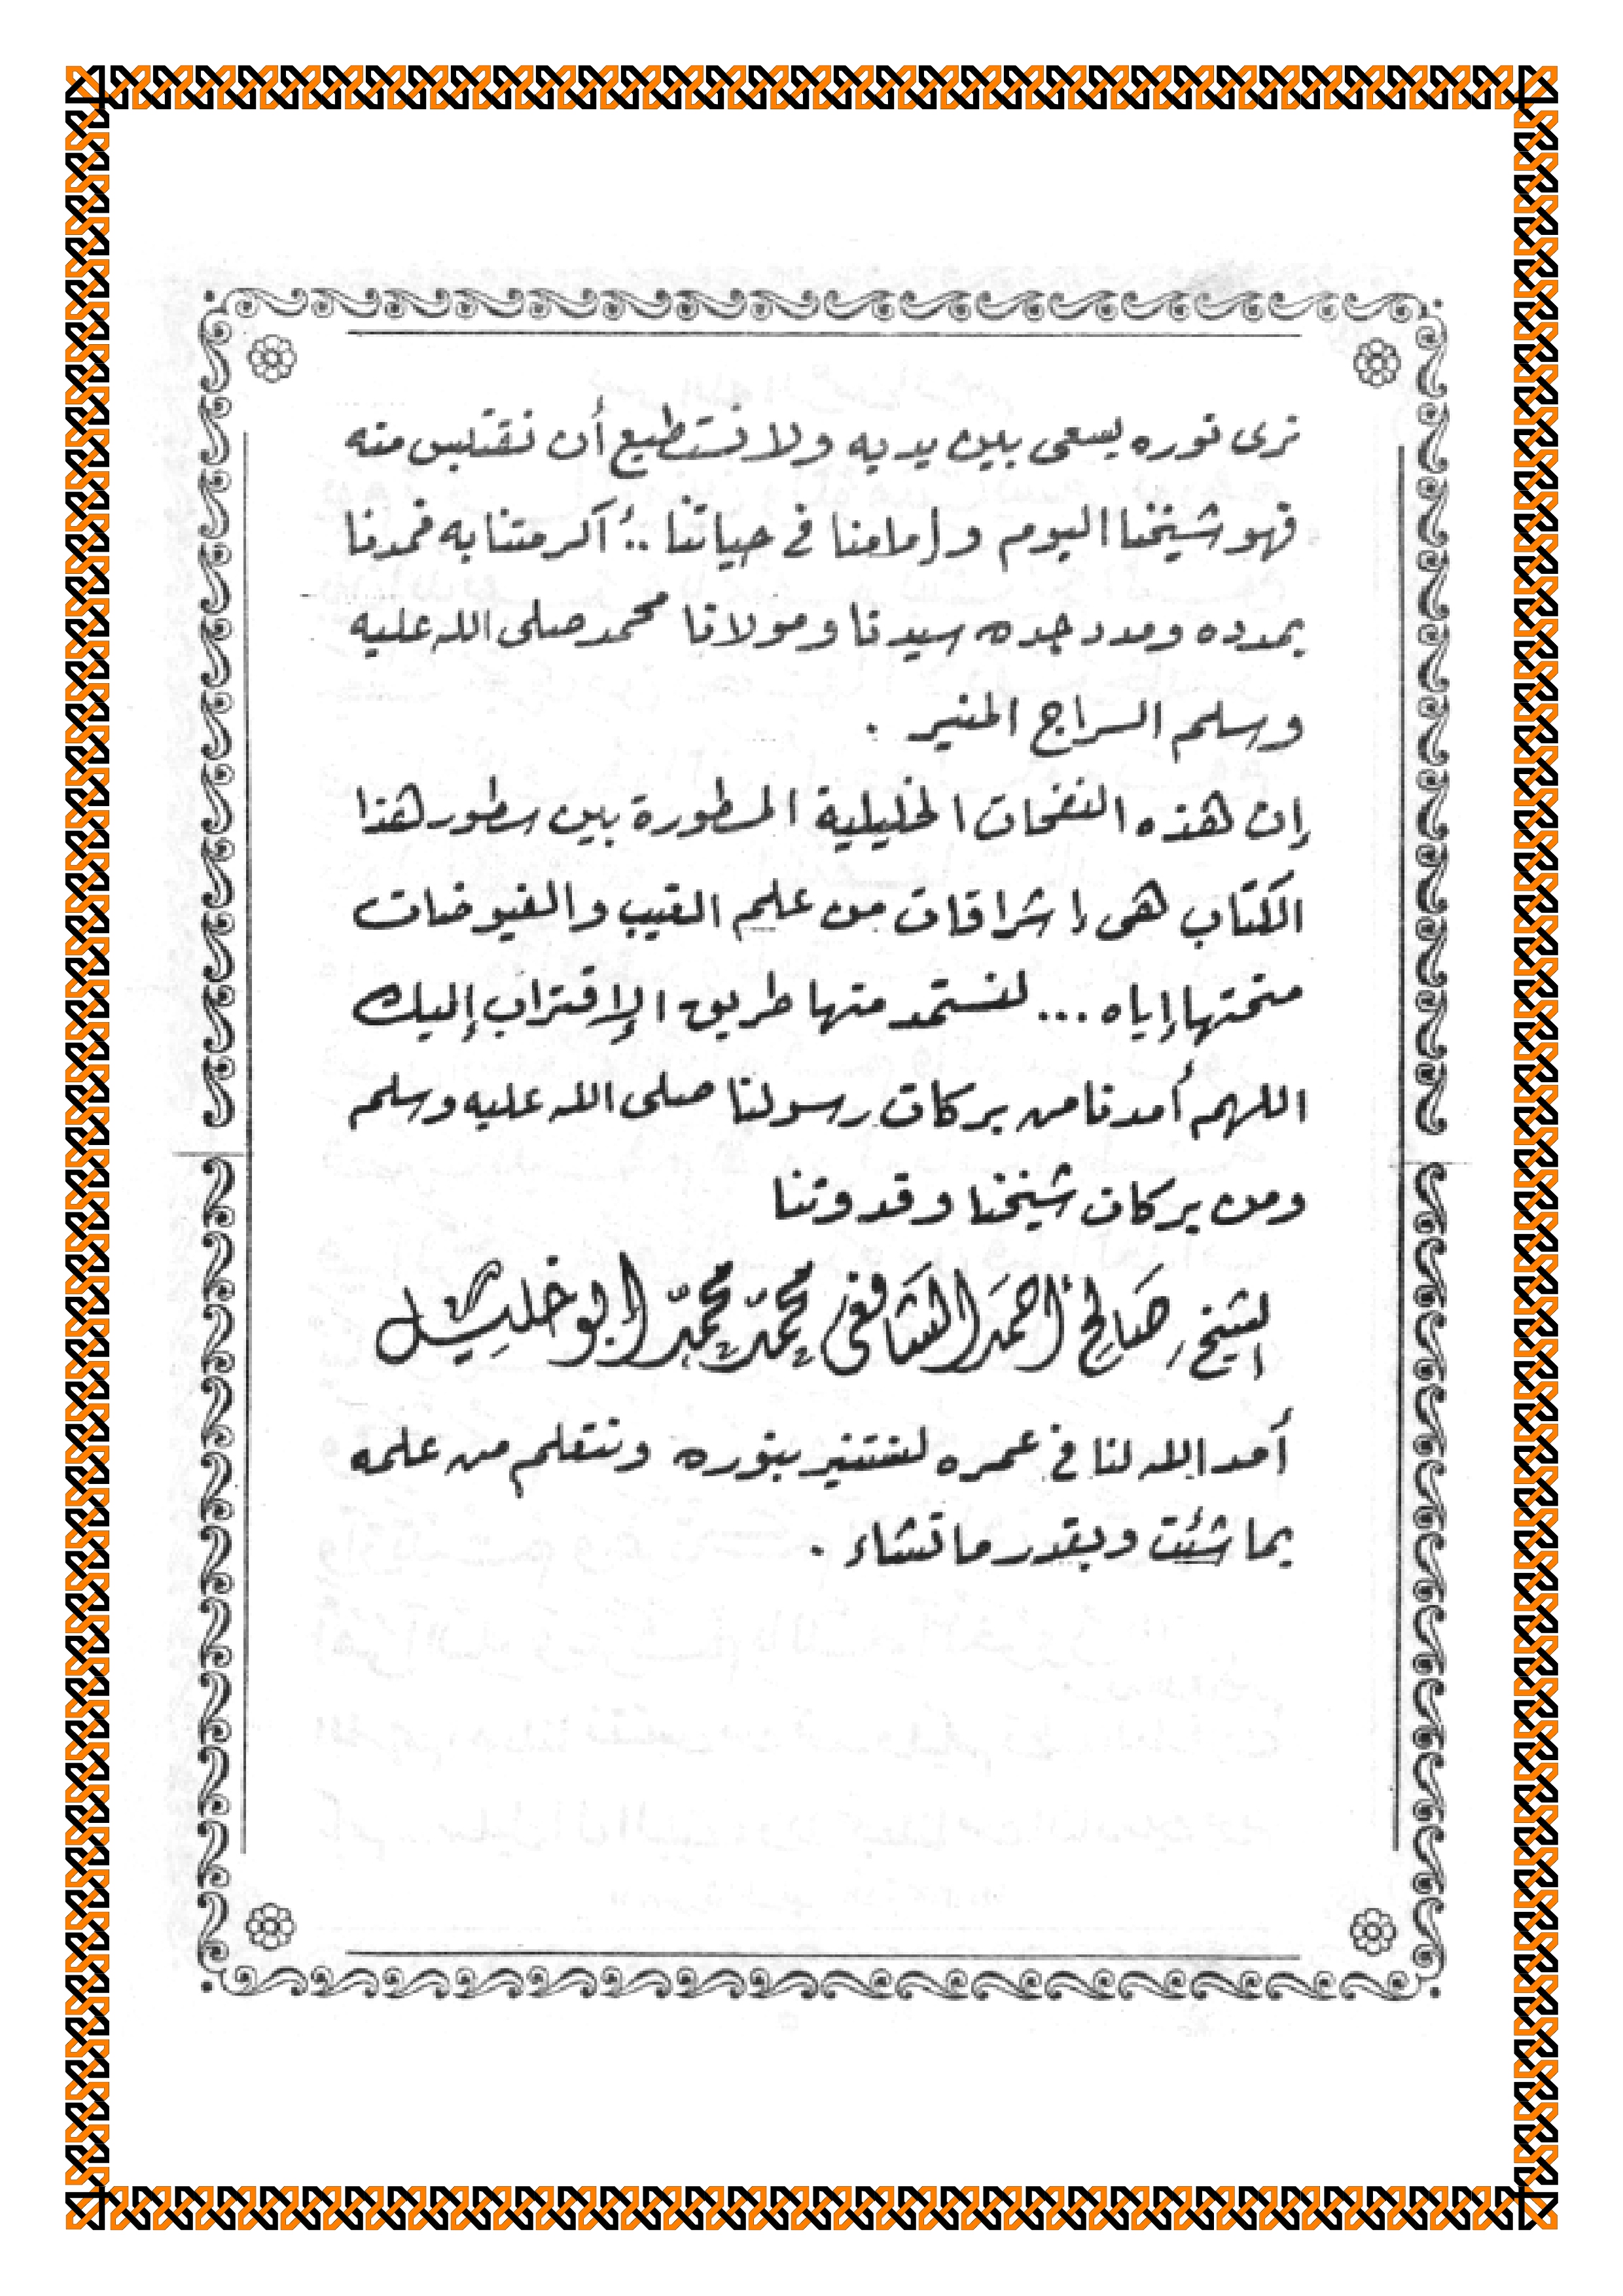 نرى نوره يسعى بين يديه ولا نستطيع أن نقتبس منه
فهو شيخنا اليوم وإمامنا فى حياتنا .. أكرمتنا به فمدنا
بمدده ومدد جده سيدنا ومولانا محمد صلى الله عليه
وسلم السراج المنير .
إن هذه النفحات الخليلية المسطورة بين سطور هذا
الكتاب هى إشراقات من علم الغيب والفيوضات
منحتها إياه ... لنستمد منها طريق الإقتراب إليك
اللهم أمدنا من بركات رسولنا صلى الله عليه وسلم
ومن بركات شيخنا وقدوتنا
الشيخ صَالح أحمَد الشافعى محمّد محمّد أبو خليل
أمد الله لنا فى عمره لنستنير بنوره ونتعلم من علمه
بما شئت وبقدر ما تشاء .